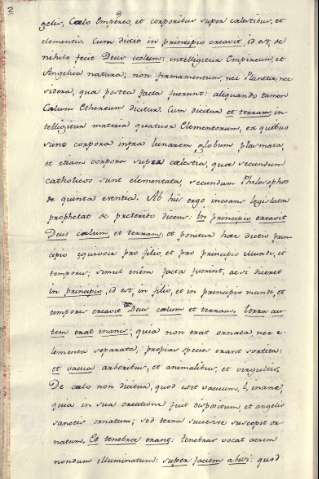 2
gelis, Coelo Empireo, et corporibus supra celestibus, et
elementis. Cum dicit in principio creavit id est, de
nihilo fecit Deus coelum: intelligitur Empireum, et
Angelica natura; non firmamentum, nec Planetae, nec
sidera, quae postea facta fuerunt: aliquando tamen
Coelum Ethereum dicitur. Cum dicitur et terram, in
telligitur materia quatuor Elementorum, ex quibus
sunt corpora infra lunarem globum plasmata,
et etiam corpora supra celestia, quae secundum
catholicos sunt elementata, secundum Philosophos
de quinta essentia. Ab hic ergo incoans legislator
prophetat de preterito dicens: In principio creavit
Deus coelum et terram, et ponitur haec dictio prin
cipio equivoce pro filio, et pro principio Mundi, et
temporis; simul enim facta fuerunt, ac si diceret
in principio, id est, in filio, et in principio mundi, et
temporis creavit Deus coelum et terram. Terra au
tem erat inanis; quia non erat ornata nec e-
lementis separata, propria specie erant
et vacua arboribus, et animalibus, et virgultis.
De coelo non dicitur, quod esset vacuum, inane,
quia in sua creatione fuit dispositum, et angelis
sanctis ornatum; sed terra successive suscepit or
natum, Et tenebrae erant: tenebras vocat aerem
nondum illuminatum: super faciem abissi: quod